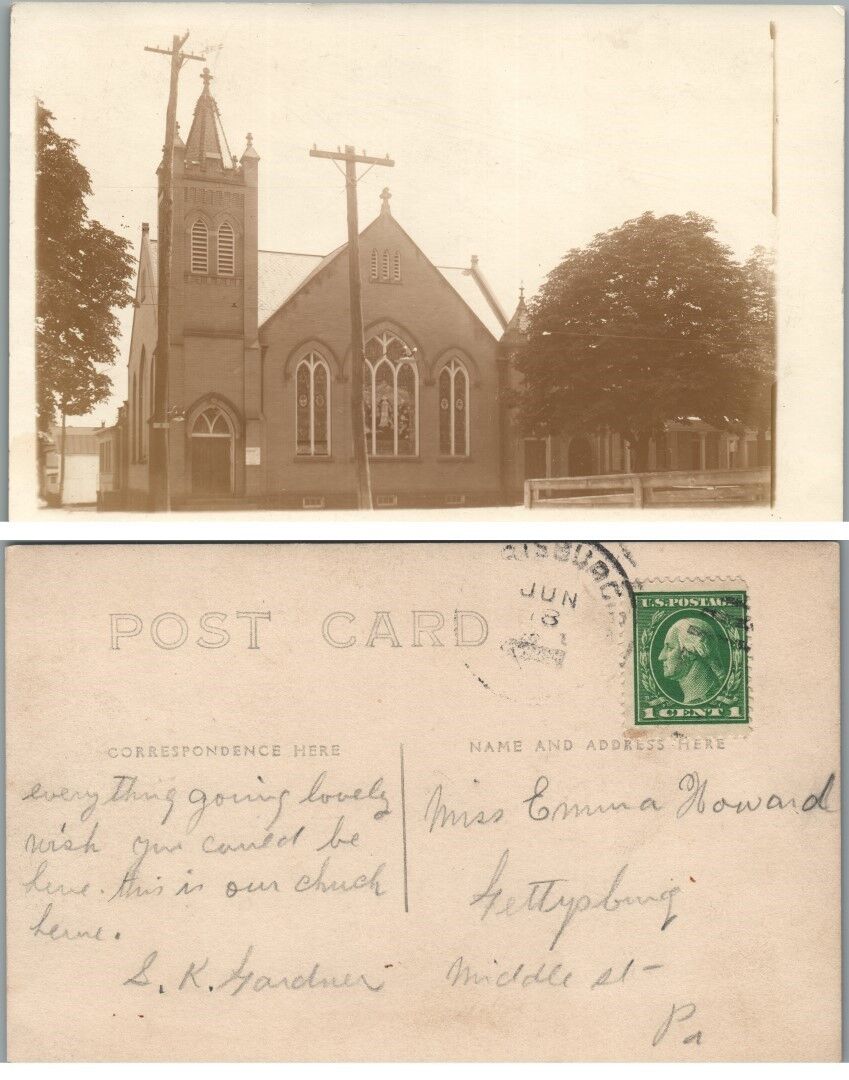 POST CARD
RISBURG
JUN
U.S. POSTAGE
1 CENT 1
CORRESPONDENCE HERE
NAME AND ADDRESS HERE
everything going lovely
wish you could be
here. this is our chuch
herne.
S. K. Gardner
Miss Emma Howard
Gettysburg
Middle st
Pa